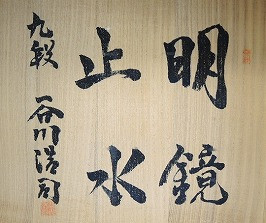 明鏡
止水
九段 谷川浩司